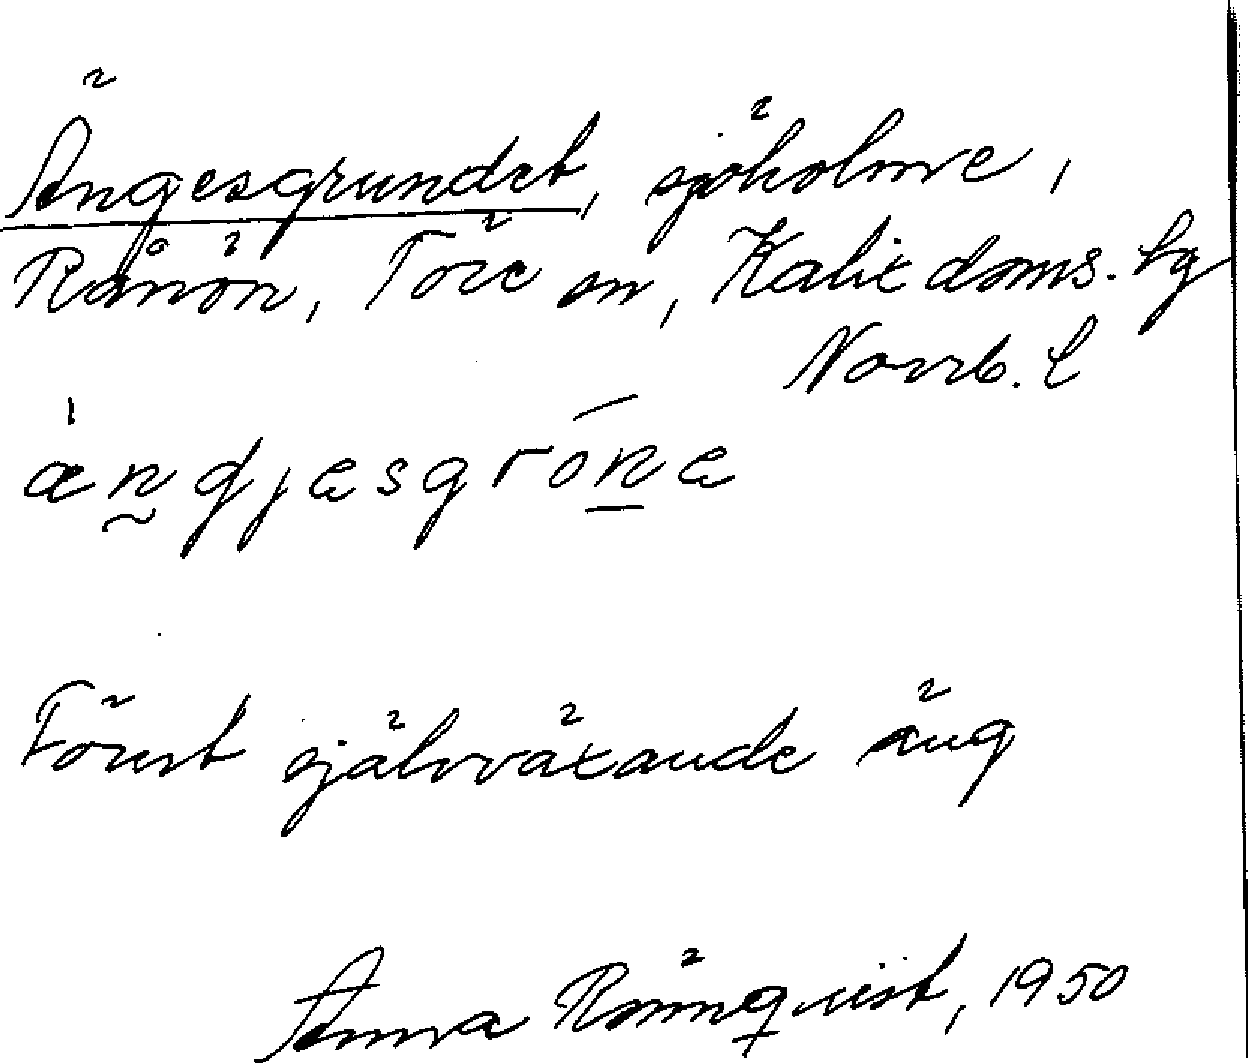 Ängesgrundet, sjöholme,
Rånön, Töre sn, Kalix doms. lg
Norrb. l
ængjesgróna
Förut självväxande äng
Anna Rönnqvist, 1950